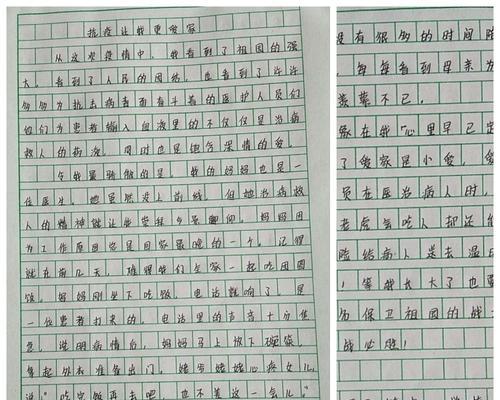 抗疫让我更爱家
从这次疫情中,我看到了祖国的强
大,看到了人民的团结,也看到了许许
多多为抗击病毒而奋斗着的医护人员们
他们为患者输入血液里的不仅仅是治病
救人的药液,同时也是饱含深情的爱。
令我最骄傲的是,我的妈妈也是一
位医生,她虽然没上前线,但她治病救
人的精神
为工作原因总是回家最晚的一个。记得
就在前几天,难得我们全家一起吃团圆
饭,妈妈刚坐下吃饭,电话就响了,是
一位患者打来的。电话里的声音十分焦
急,说明病情后,妈妈马上放下碗筷,
拿起外衣准备出门。姥爷姥姥心疼女儿
说:"吃完饭再去吧,也不差这一会儿。"
没有很多的时间陪
每每看到母亲为
羡慕不已。
家在我心里早已定
了爱家是小爱,爱
员在医治病人时,
老虎会吃人却还
险给病人送去温
!等我长大了也要
为保卫祖国的战
战必胜!